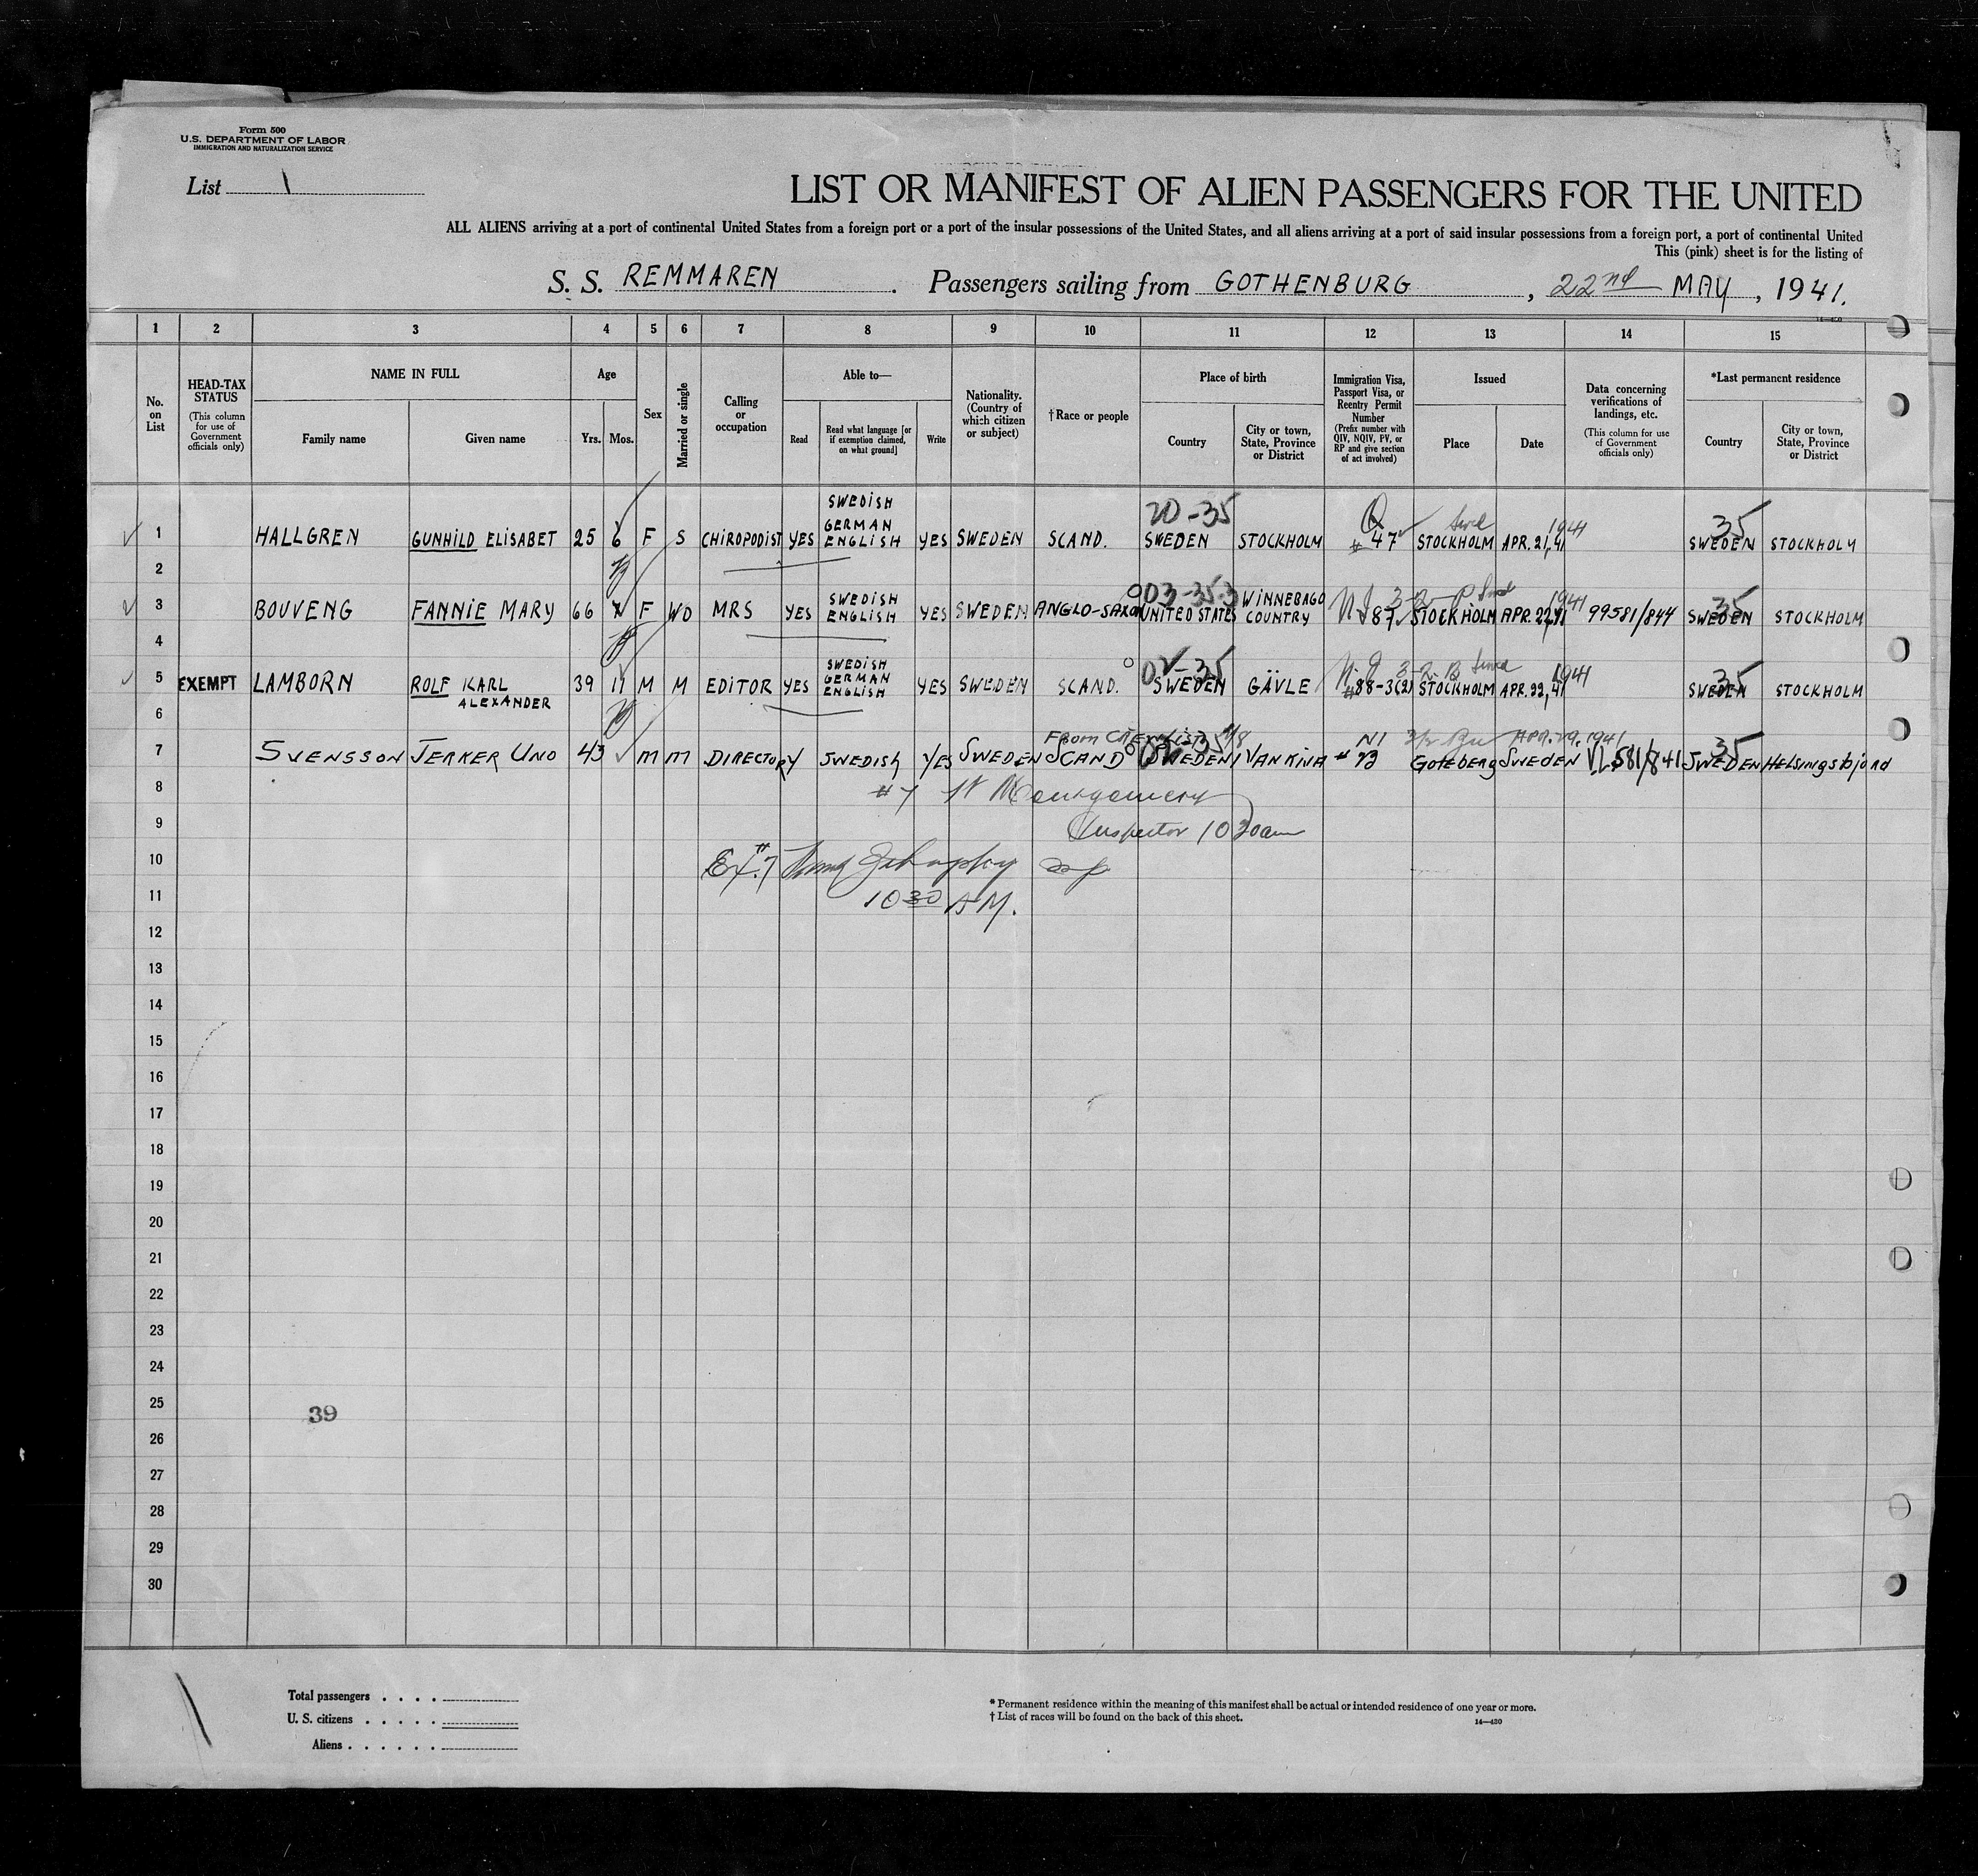 Form 500
U.S. DEPARTMENT OF LABOR
IMMIGRATION AND NATURALIZATION SERVICE
List 1
LIST OR MANIFEST OF ALIEN PASSENGERS FOR THE UNITED
ALL ALIENS arriving at a port of continental United States from a foreign port or a port of the insular possessions of the United States, and all aliens arriving at a port of said insular possessions from a foreign port, a port of continental United
This (pink) sheet is for the listing of
S. S. REMMAREN. Passengers sailing from GOTHENBURG, 22nd MAY, 1941.
14-430
1 2 3 4 5 6 7 8 9 10 11 12 13 14 15
No. on List
HEAD-TAX STATUS
(This column for use of Government officials only)
NAME IN FULL
Family name
Given name
Age
Yrs.
Mos.
Sex
Married or single
Calling or occupation
Able to—
Read
Read what language [or if exemption claimed, on what ground]
Write
Nationality. (Country of which citizen or subject)
†Race or people
Place of birth
Country
City or town, State, Province or District
Immigration Visa, Passport Visa, or Reentry Permit Number
(Prefix number with QIV, NQIV, PV, or RP and give section of act involved)
Issued
Place
Date
Data concerning verifications of landings, etc.
(This column for use of Government officials only)
*Last permanent residence
Country
City or town, State, Province or District
20-35 Q 1941 35
1 HALLGREN GUNHILD ELISABET 25 6 F S CHIROPODIST YES SWEDISH GERMAN ENGLISH YES SWEDEN SCAND. SWEDEN STOCKHOLM # 47 STOCKHOLM APR. 21, 41 SWEDEN STOCKHOLM
2
003-35-3 1941 35
3 BOUVENG FANNIE MARY 66 F WD MRS YES SWEDISH ENGLISH YES SWEDEN ANGLO-SAXON UNITED STATES WINNEBAGO COUNTRY 87 STOCKHOLM APR. 22, 41 99581/844 SWEDEN STOCKHOLM
4
35 1941 35
5 EXEMPT LAMBORN ROLF KARL ALEXANDER 39 11 M M EDITOR YES SWEDISH GERMAN ENGLISH YES SWEDEN SCAND. SWEDEN GÄVLE #88-3(2) STOCKHOLM APR. 22, 41 SWEDEN STOCKHOLM
6
From CREWLIST NI APR. 29, 1941 35
7 SVENSSON JERKER UNO 43 M M DIRECTOR Y SWEDISH YES SWEDEN SCAND SWEDEN # 93 Goteborg SWEDEN SWEDEN
8 #7 Montgomery
9 Inspector 10 30 am
10 Ex. #7
11 10 30 AM.
12
13
14
15
16
17
18
19
20
21
22
23
24
25
39
26
27
28
29
30
Total passengers
U. S. citizens
Aliens
* Permanent residence within the meaning of this manifest shall be actual or intended residence of one year or more.
† List of races will be found on the back of this sheet.
14-430